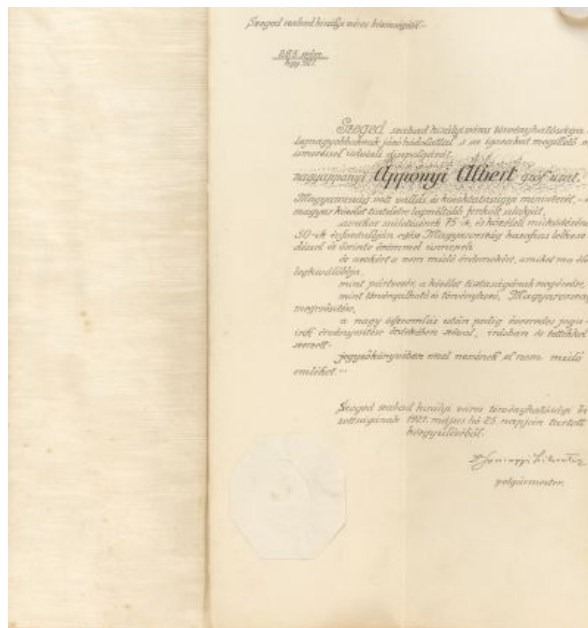 Szeged szabad királyi város közönségétől.
kgy. 1921.
Szeged szabad királyi város törvényhatósága a
legnagyobbaknak járó hódolattal s az igazakat megillető
ismeréssel üdvözli díszpolgárát,
nagyapponyi Apponyi Albert gróf urat,
Magyarország volt vallás és közoktatásügyi miniszterét, a
magyar közélet tiszteletre legméltóbb fenkölt alakját,
amikor születésének 75-ik, és közéleti működésének
50-ik évfordulóján egész Magyarország hazafias lelkese
déssel és őszinte örömmel ünnepli
és azokért a nem múló érdemekért, amiket ma élő
legkiválóbbja,
mint pártvezér, a közélet tisztaságának megóvása,
mint törvényalkotó és törvényhozó, Magyarország
megerősítése,
a nagy összeomlás után pedig ezeréves joga-
ink érvényesítése érdekében szóval, írásban és tettekkel
szerzett.
jegyzőkönyvében ezzel nevének el nem múló
emléket."
Szeged szabad királyi város törvényhatósági bi
zottságának 1921. május hó 25. napján tartott
közgyűléséből.
polgármester.